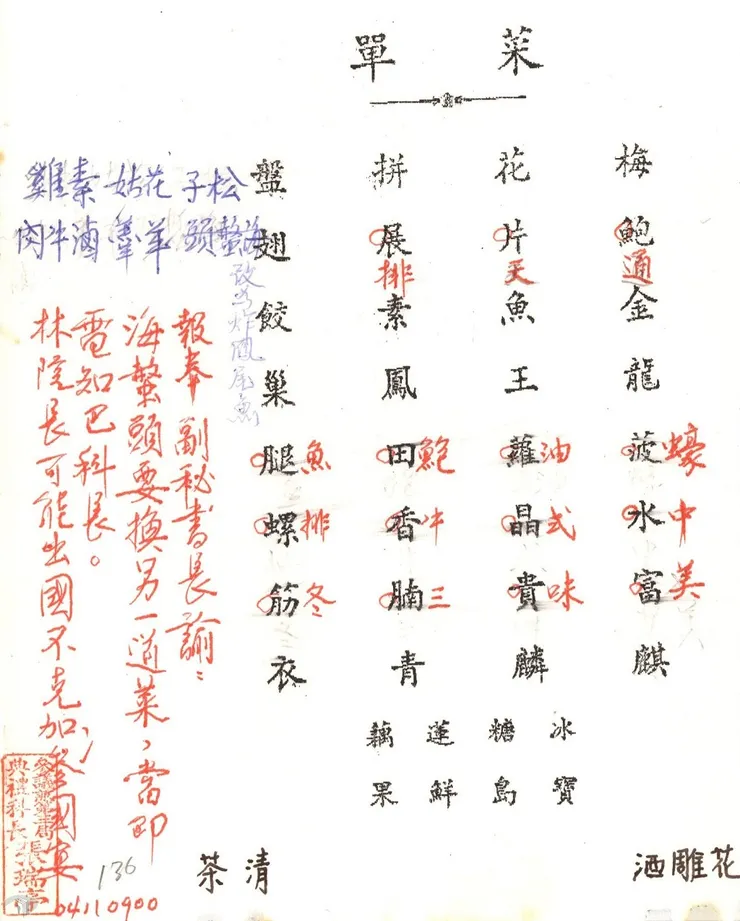 菜單
梅花拼盤
鮑片展翅
通天排
金魚素餃
龍王鳳巢
菠蘿田腿
蠔油鮑魚
水晶香螺
中式牛排
富貴腩筋
美味三冬
麒麟青衣
冰糖蓮藕
寶島鮮果
花雕酒
清茶
松子 花姑 素雞
海蟄頭 羊羹 滷牛肉
改為炸鳳尾魚
報奉副秘書長諭：
海蟄頭要換另一道菜、當即
電知巴科長。
林院長可能出國不克加參國宴
典禮科長張瑞亭
04110900
136